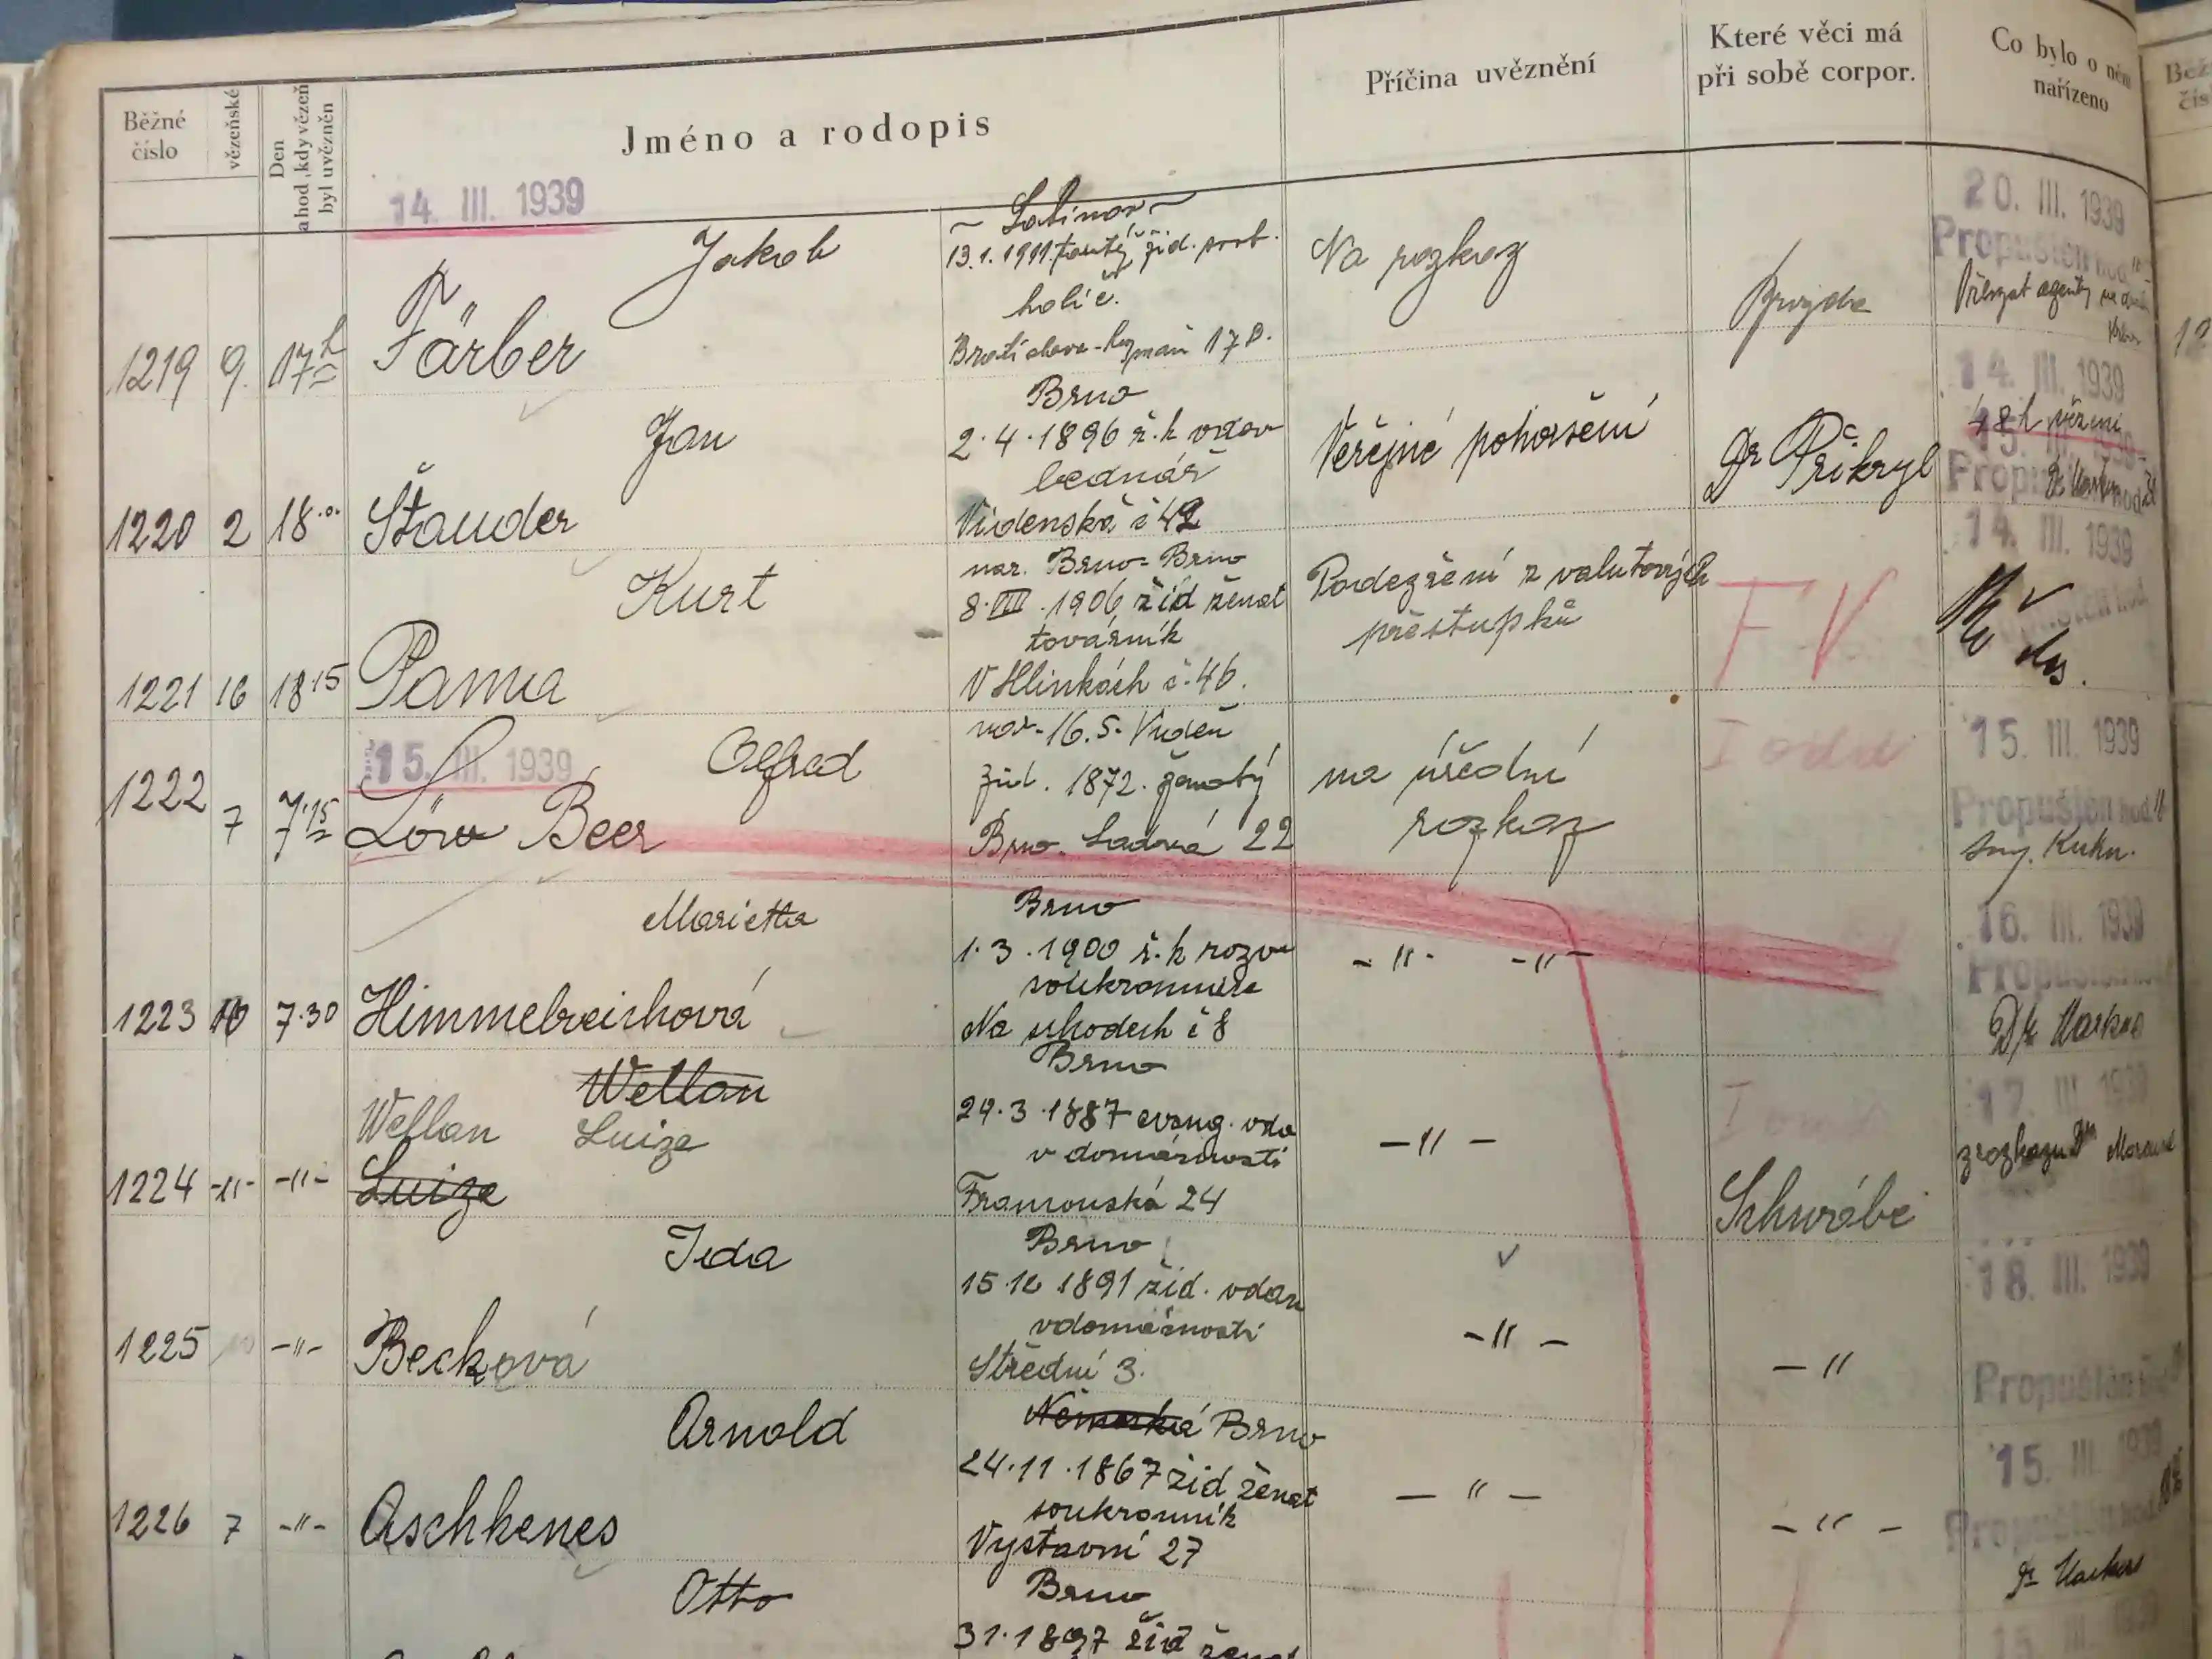 Běžné číslo
vězeňské
Den a hod, kdy vězeň byl uvězněn
Jméno a rodopis
Příčina uvěznění
Které věci má při sobě corpor.
Co bylo o něm nařízeno
14. III. 1939
20. III. 1939
Jakob
13.1.1911 žid.
Na rozkaz
Propuštěn hod
holič.
1219 9. 17h Färber
Bratislava 178.
14. III. 1939
Brno
48h vězení
Jan
2.4.1896 ř.k vdov
Veřejné pohoršení
Dr Přikryl
15. III. 1939
bednář
1220 2 18.00 Štauder
Vídenská č 42
14. III. 1939
nar. Brno-Brno
Kurt
8.VIII.1906 žid ženat
Podezření z valutových
F V
továrník
přestupků
1221 16 18.15 Pama
V Hlinkách č.46.
nar. 16.5. Vídeň
15. III. 1939
Alfred
15. III. 1939
žid. 1872. ženatý
na úřední
1222 7 7.15 Löw Beer
Brno. Sadová 22
rozkaz
Propuštěn hod
Kuhn.
Marietta
Brno
16. III. 1939
1.3.1900 ř.k rozv
-"- -"-
Propuštěn
soukromnice
1223 10 7.30 Himmelreichová
Na schodech č 8
Dr Markus
Wellan
Brno
17. III. 1939
Wellan Luize
24.3.1887 evang. vdo
-"-
v domácnosti
z rozkazu
1224 -"- -"- Luize
Francouská 24
Schwábe
Ida
Brno
18. III. 1939
15.12 1891 žid. vdan
v domácnosti
-"-
1225 -"- Becková
Střední 3.
-"
Propuštěn
Arnold
Německá Brno
15. III. 1939
24.11.1867 žid ženat
-"-
soukromník
1226 7 -"- Aschkenes
Výstavní 27
-"-
Propuštěn hod
Otto
Brno
Dr Markus
31.1897 žid ženat
15. III. 1939